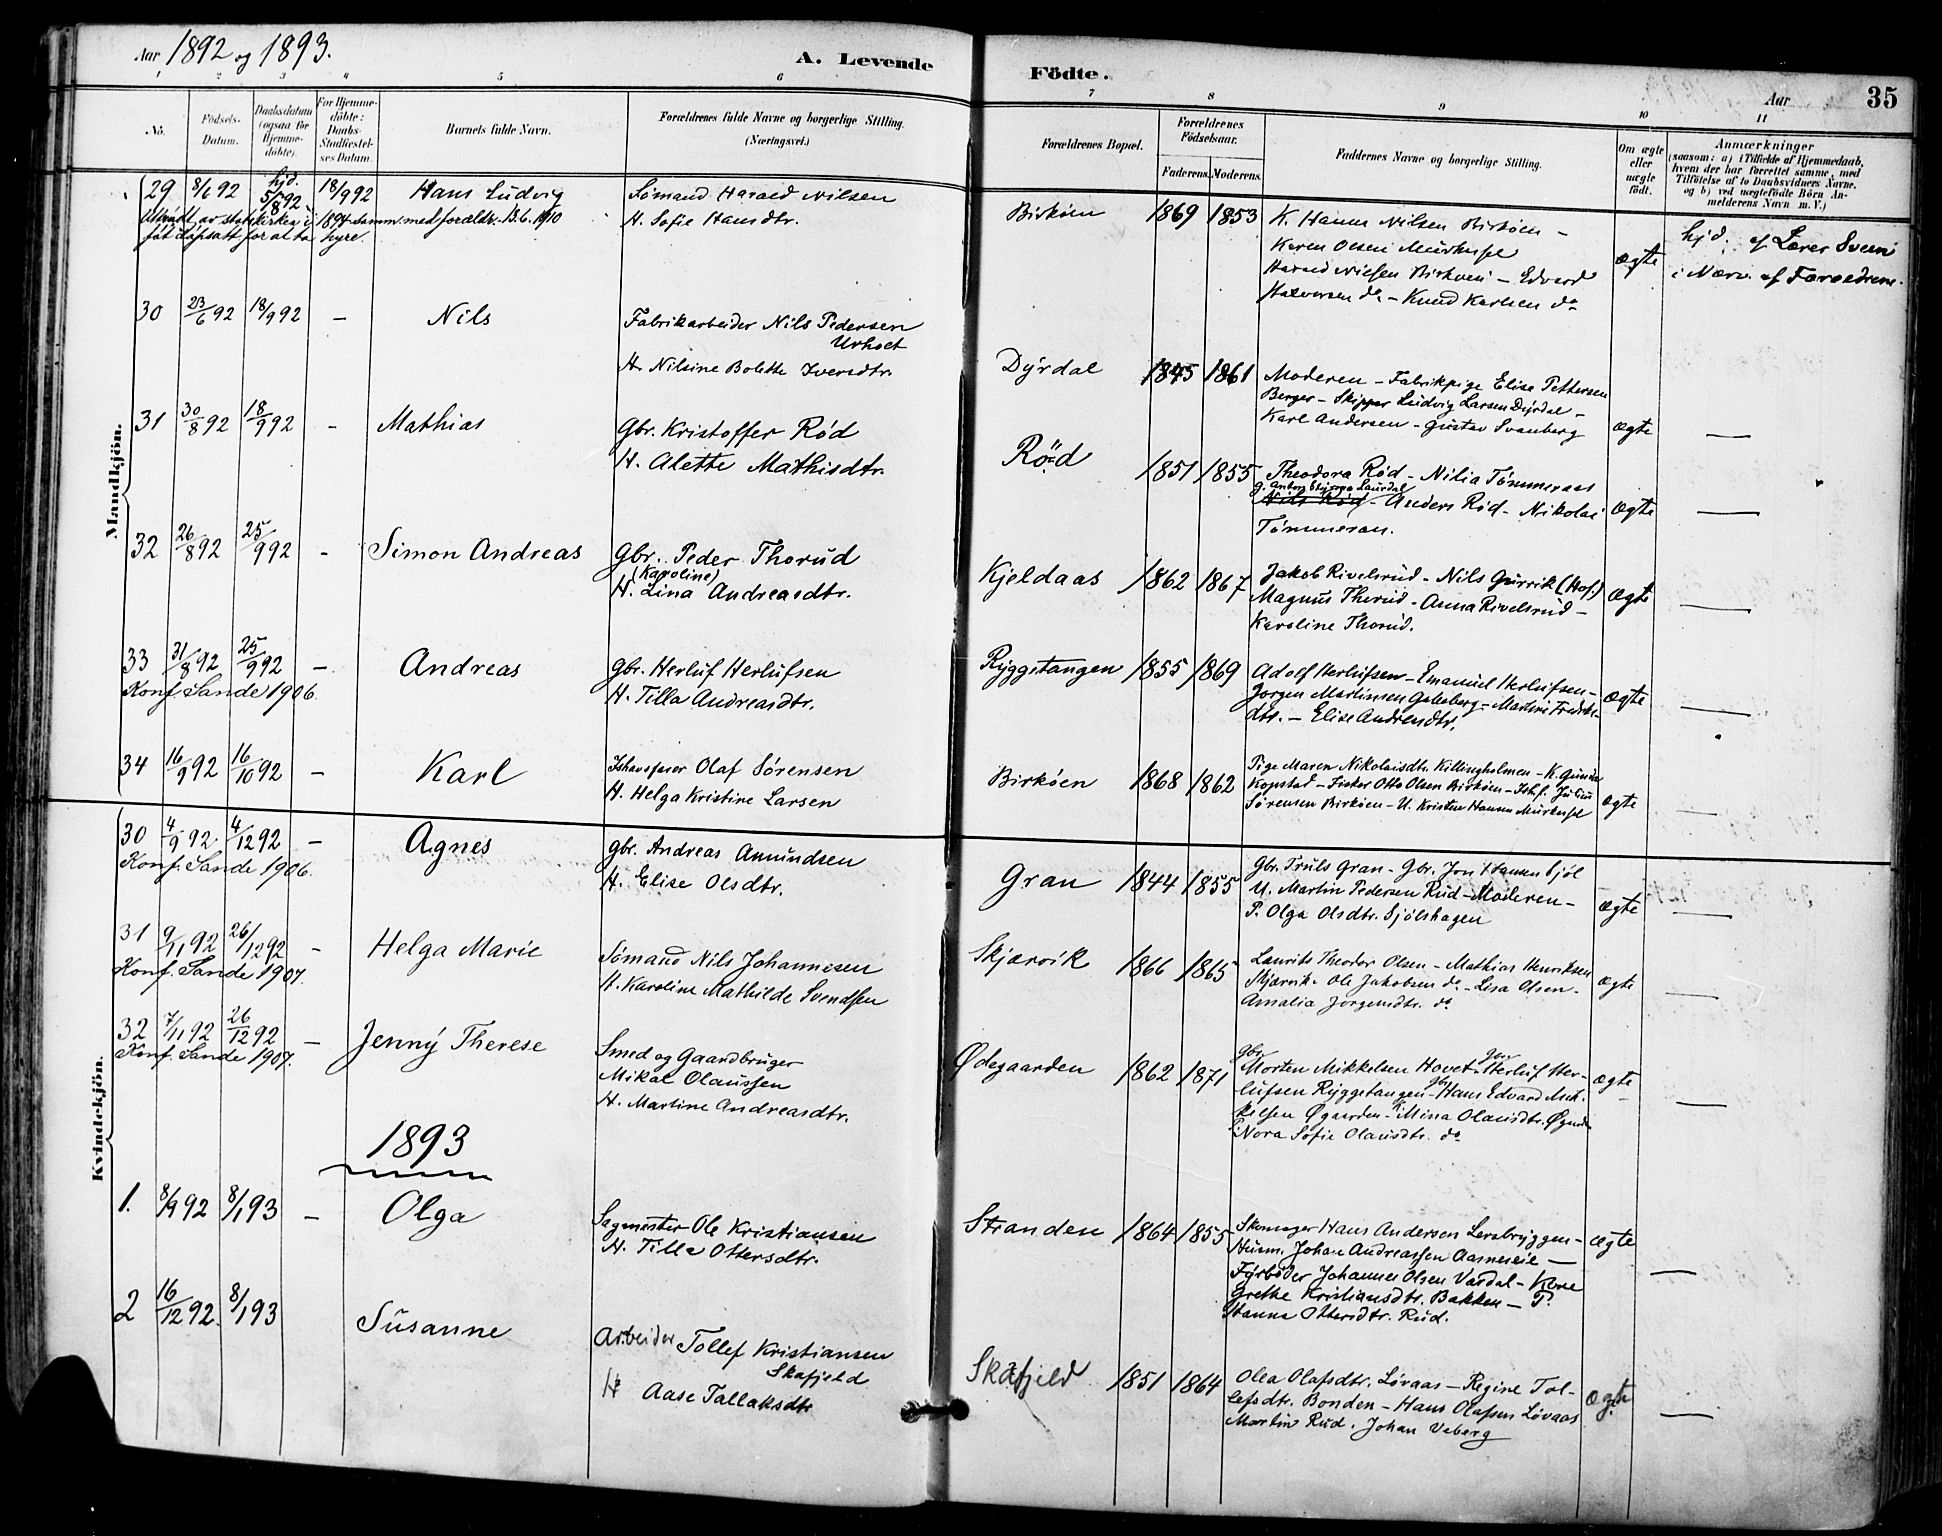 Aar 1892 og 1893. A. Levende Födte. Aar 35
1 2 3 4 5 6 7 8 9 10 11
No. Födsels-Datum. Daabsdatum (ogsaa for Hjemme-döbte). For Hjemme-döbte: Daabs-Stadfæstel-ses Datum. Barnets fulde Navn. Forældrenes fulde Navne og borgerlige Stilling. (Næringsvei.) Forældrenes Bopæl. Forældrenes Födselsaar. Faderens. Moderens. Faddernes Navne og borgerlige Stilling. Om ægte eller uægte födt. Anmærkninger (saasom: a) i Tilfælde af Hjemmedaab, hvem der har forrettet samme, med Tilföielse af to Daabsvidners Navne. og b) ved uægtefödte Börn An-melderens Navn m. V.)
Mandkjön.
29 8/6 92 hjd. 5/8 92 18/9 92 Hans Ludvig
Sömand Harald Nilsen
H. Sofie Hansdtr.
Utmeldt av statskirken i 1894 samm. med foreldr. 13.6.1910
föt døpsatt for at ta hyre.
Birköen 1869 1853
K. Hanna Nilsen Birköen –
Karen Olsen
Harald Nielsen Birköen – Edvard
Halvorsen do – Knud Karlsen do
ægte
hjd. af Lærer Svem
i Nærv. af Forældrene.
30 23/6 92 18/9 92 – Nils
Fabrikarbeider Nils Pedersen
H. Nilsine Bolette Iversdtr.
Dyrdal 1845 1861
Moderen – Fabrikpige Elise Pettersen
Berger – Skipper Ludvig Larsen Dyrdal –
Karl Andersen – Gustav Svanberg
ægte —
31 30/8 92 18/9 92 – Mathias
Gbr. Kristoffer Röd
H. Alette Mathisdtr.
Röd 1851 1855
Theodora Röd – Nilia Tömmeraas
Nils Röd – Anders Röd – Nikolai
Tömmeraas.
ægte —
32 26/8 92 25/9 92 – Simon Andreas
Gbr. Peder Thorud
(Karoline)
H. Lina Andreasdtr.
Kjeldaas 1862 1867
Jakob Rivelsrud – Nils Gurrik (Hof.)
Magnus Thorud – Anna Rivelsrud –
Karoline Thorud.
ægte —
33 31/8 92 25/9 92 – Andreas
Konf. Sande 1906.
Gbr. Herluf Herlufsen
H. Tilla Andreasdtr.
Ryggetangen 1855 1869
Adolf Herlufsen – Emanuel Herlufsen –
Jorgen Martinsen Galsberg – Martine Fredriks-
dtr. – Elise Andreasdtr.
ægte —
34 16/9 92 16/10 92 – Karl
Ishavsfarer Olaf Sörensen
H. Helga Kristine Larsen
Birköen 1868 1862
Pige Maren Nikolaisdtr. Killingholmen – K. Gunda
Kopstad – Fisker Otto Olsen Birköen – Ishf. Julius
Sörensen Birköen – U. Kristen Hansen
ægte —
Kvindekjön.
30 4/9 92 4/12 92 – Agnes
Konf. Sande 1906.
Gbr. Andreas Amundsen
H. Elise Olsdtr.
Gran 1844 1855
Gbr. Truls Gran – Gbr. Jon Hansen Sjöl
U. Martin Pedersen Rud – Moderen –
P. Olga Olsdtr. Sjölshagen
ægte —
31 9/11 92 26/12 92 – Helga Marie
Konf. Sande 1907.
Sömand Nils Johannesen
H. Karoline Mathilde Svendsen
Skjærvik 1866 1865
Laurits Theodor Olsen – Mathias Henriksen
Skjærvik – Ole Jakobsen do – Lisa Olsen –
Amalia Jorgensdtr. do
ægte —
32 7/11 92 26/12 92 – Jenny Therese
Konf. Sande 1907.
Smed og Gaardbruger
Mikal Olaussen
H. Martine Andreasdtr.
Ødegaarden 1862 1871
Gbr. Morten Mikkelsen Hovet – Gbr. Herluf Her-
lufsen Ryggetangen – Gbr. Hans Edvard Mik-
kelsen Øgaarden – P. Mina Olausdtr. Øgaarden
P. Nora Sofie Olausdtr. do
ægte —
1893
1. 8/9 92 8/1 93 – Olga
Sagmester Ole Kristiansen
H. Tilla Ottersdtr.
Stranden 1864 1855
Skomager Hans Andersen Lersbryggen –
Husm. Johan Andreassen Aasneeie –
Fyrböder Johannes Olsen Vardal – Kone
Grethe Kristiansdtr. Bakken – P.
Hanna Ottersdtr. Rud.
ægte —
2 16/12 92. 8/1 93 Susanne
Arbeider Tollef Kristiansen
Skafjeld
H. Aase Tallaksdtr
Skafjeld 1851 1864
Olea Olafsdtr. Lövaas – Regine Tol-
lefsdtr. Bonden – Hans Olafsen Lövaas
Martin Rud. Johan Veberg
ægte —